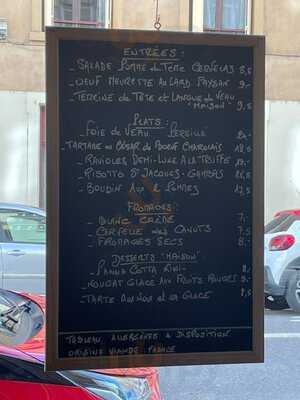 ENTRÉES :
- SALADE POMME DE TÊTE CERVELAS 8,5
- OEUF MEURETTE AU LARD PAYSAN 9.-
- TERRINE DE TÊTE ET LANGUE DE VEAU
"MAISON" 9,5
PLATS :
- FOIE DE VEAU PERSILLÉ
- TARTARE AU DE BOEUF CHAROLAIS
- RAVIOLES DEMI-LUNE A LA TRUFFE
- RISOTTO ST JACQUES - GAMBAS
- BOUDIN AUX 2 POMMES 17,5
FROMAGES :
- BLANC CRÈME 7.-
- CERVELLE DES CANUTS 7,5
- FROMAGES SECS 8.-
DESSERTS "MAISON"
- PANNA COTTA KIWI 8.-
- NOUGAT GLACE AUX FRUITS ROUGES 9.-
- TARTE DU NOIR ET SA GLACE 8,5
TABLEAU ALLERGÈNES A DISPOSITION
ORIGINE VIANDE : FRANCE